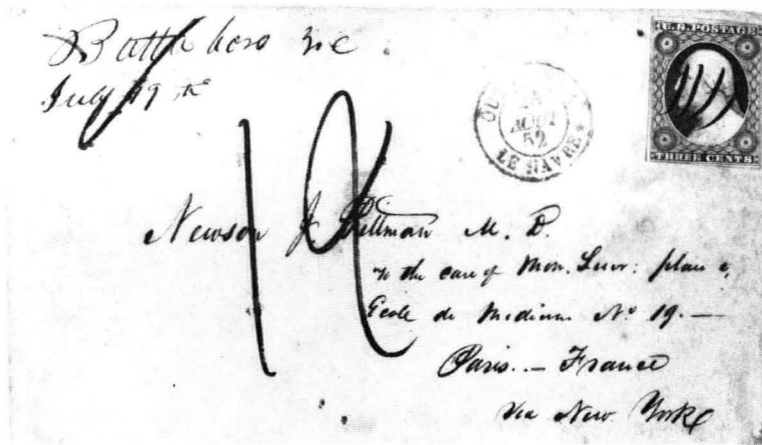 Battleboro NC
July 19th
U.S. POSTAGE
THREE CENTS
AOUT
52
LE HAVRE
12
Newson J Pittman M. D.
to the care of Mon. Luer: place
Ecole de Medicine No 19. —
Paris.. — France
Via New York